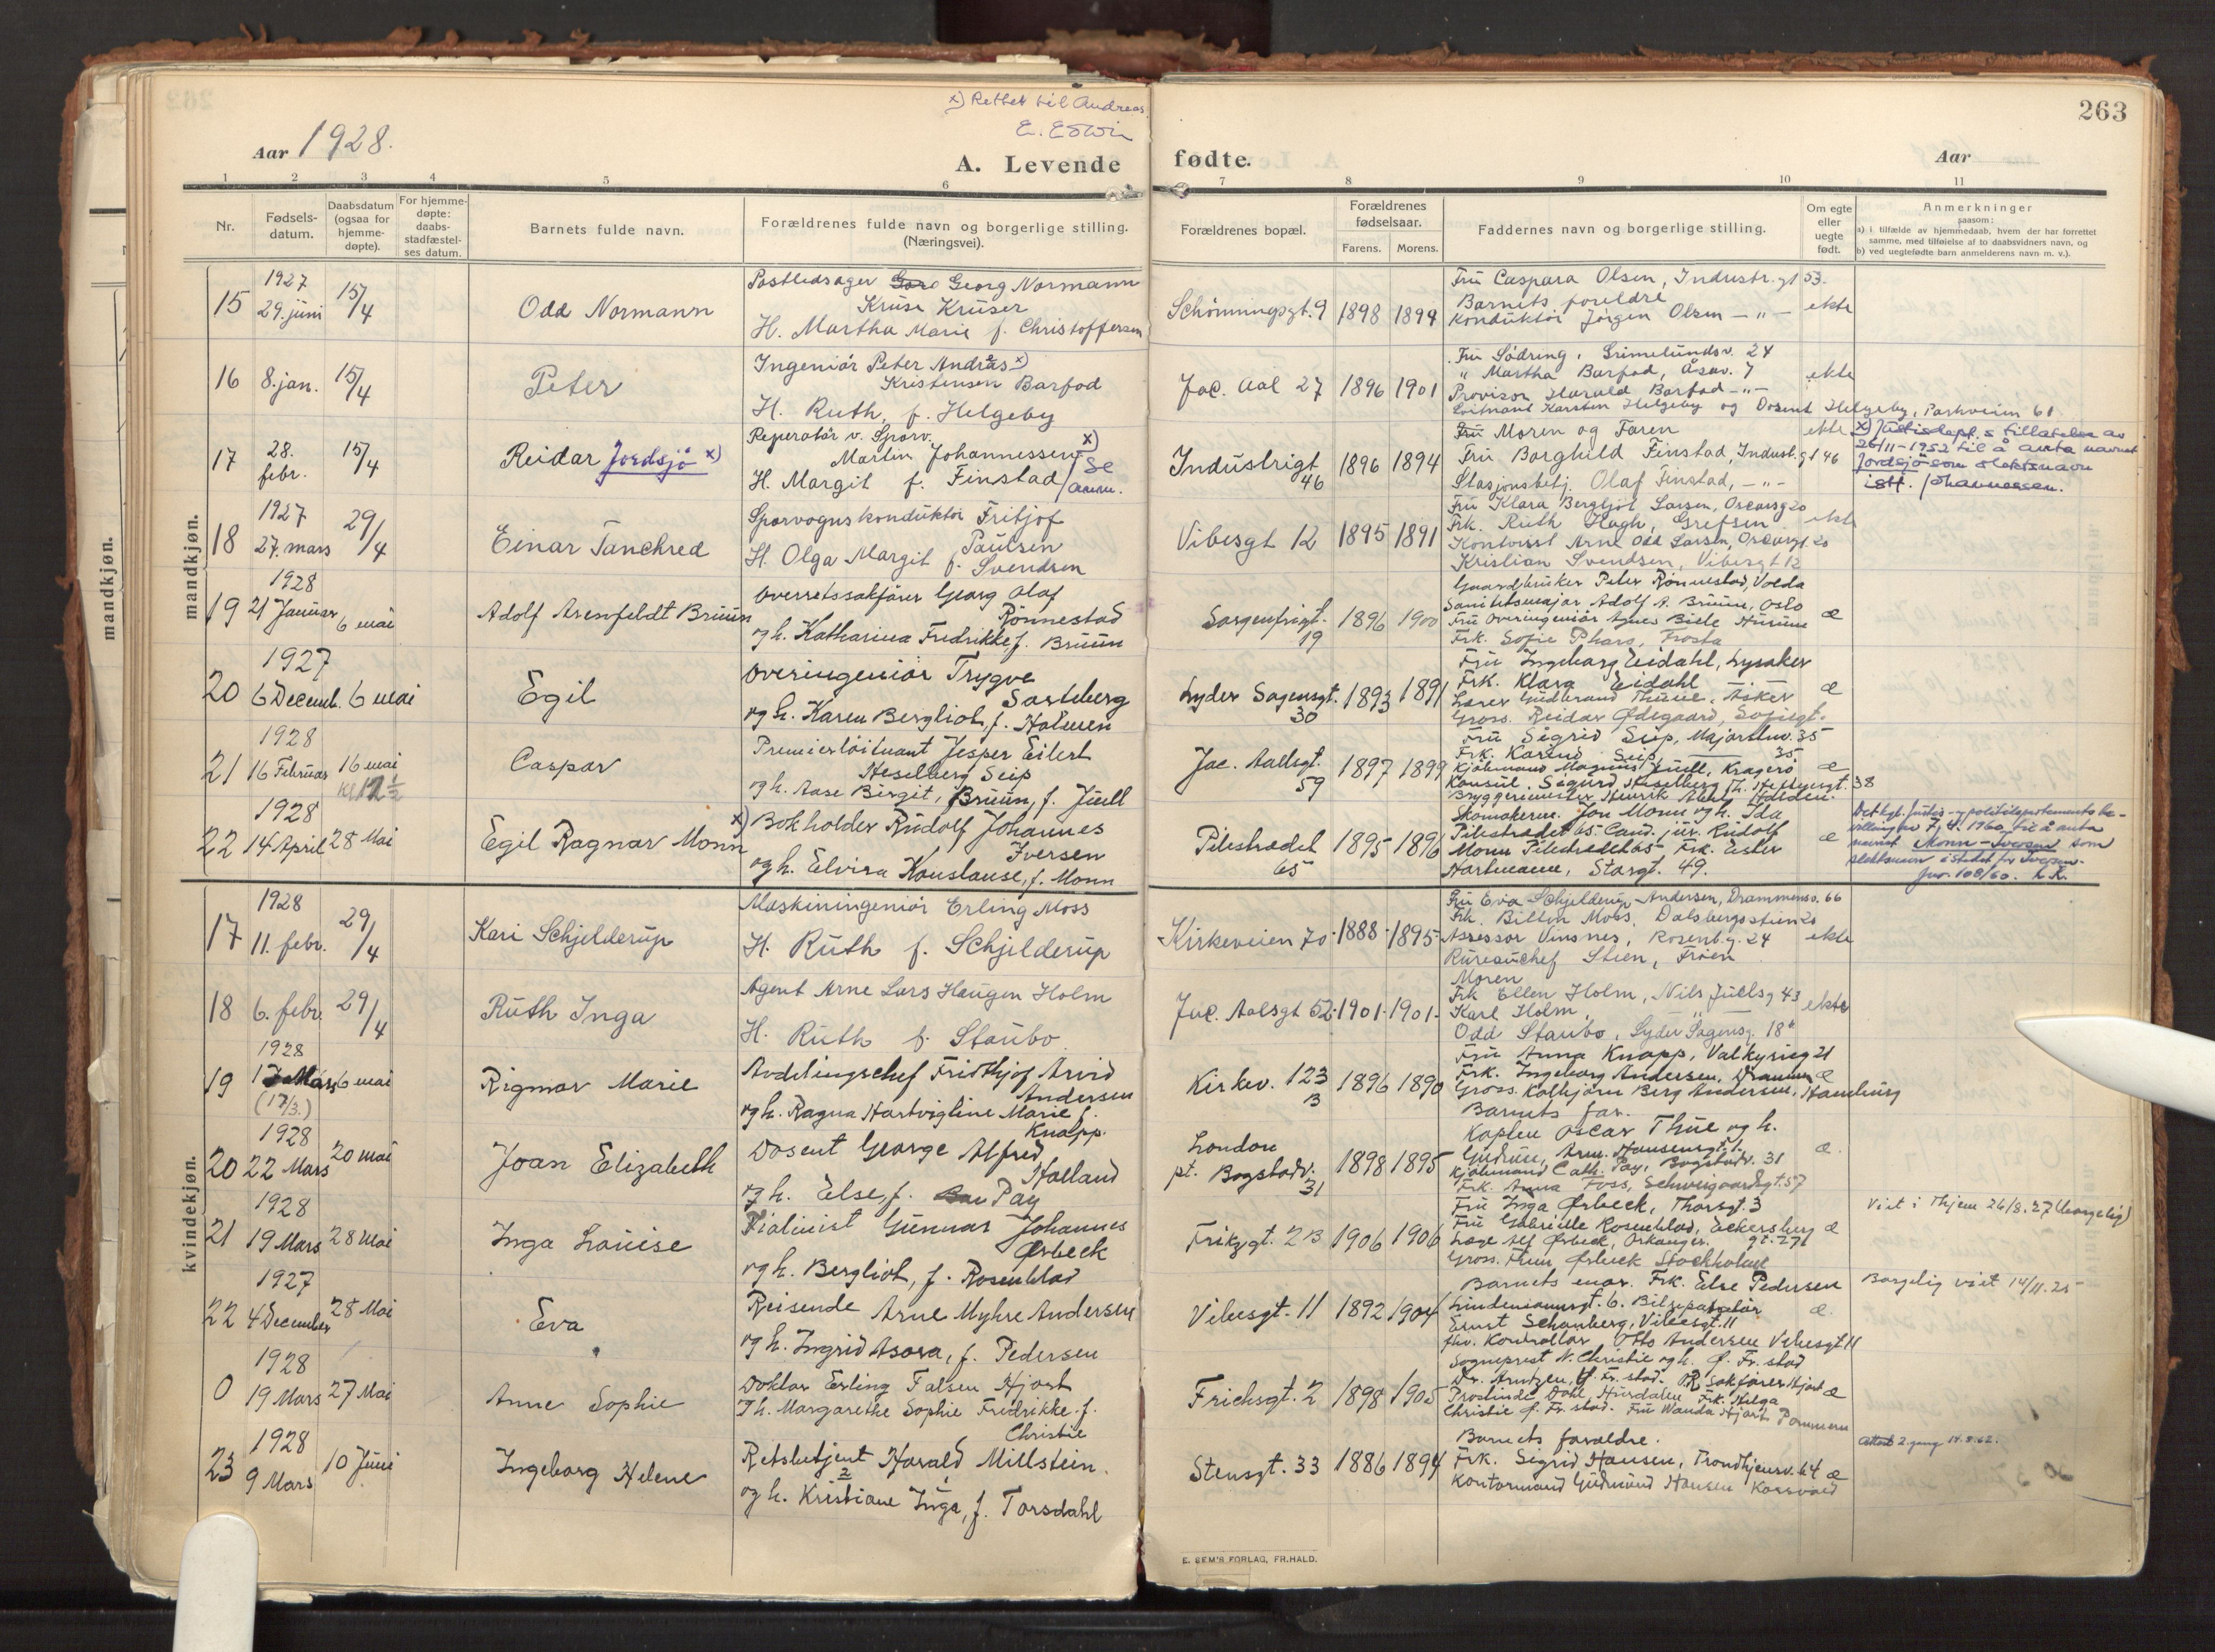 263
x) Rettet til Andreas
E. Edwin
Aar 1928.
A. Levende fødte.
Aar
1 2 3 4 5 6 7 8 9 10 11
Nr.
Fødsels-
datum.
Daabsdatum
(ogsaa for
hjemme-
døpte).
For hjemme-
døpte:
daabs-
stadfæstel-
ses datum.
Barnets fulde navn.
Forældrenes fulde navn og borgerlige stilling.
(Næringsvei).
Forældrenes bopæl.
Forældrenes
fødselsaar.
Farens. Morens.
Faddernes navn og borgerlige stilling.
Om egte
eller
uegte
født.
Anmerkninger
saasom:
a) i tilfælde av hjemmedaab, hvem der har forrettet
samme, med tilføielse af to daabsvidners navn, og
b) ved uegtefødte barn anmelderens navn m. v.).
mandkjøn.
mandkjøn.
15 1927 29. juni 15/4 Odd Normann
Postbedrager Georg Normann
Kruse Kruser
H. Martha Marie f. Christoffersen
Schönningsgt. 9 1898 1899
Fru Caspara Olsen, Industr.gt 53.
Barnets foreldre
Konduktör Jörgen Olsen — " —
ekte
16 8. jan. 15/4 Peter
Ingeniör Peter Andreas x)
Kristensen Barfod
H. Ruth, f. Helgeby
Jac. Aal 27 1896 1901
Fru Södring, Grimelundsv. 24
" Martha Barfod, Åsav. 7
Provisor Harald Barfod — " —
Loitnant Karsten Helgeby og Dosent Helgeby, Parkveien 61
ekte
17 28. febr. 15/4 Reidar Jordsjö x)
Reperatör v. Sporv.
Martin Johannessen x)
H. Margit f. Finstad / Se anm.
Industrigt 46 1896 1894
Fru Moren og Faren
Fru Borghild Finstad, Indust.gt 46
Stasjonsbetj. Olaf Finstad, — " —
ekte
x) Justisdept.s tillatelse av
26/11-1952 til å anta navnet
Jordsjö som slektsnavn
istf. Johannessen.
18 1927 27. mars 29/4 Einar Tanchred
Sporvognskonduktör Fritjof
Paulsen
H. Olga Margit f. Svendsen
Vibesgt 12 1895 1891
Fru Klara Bergljot Larsen, Oscarsg 20
Frk. Ruth Hagh, Grefsen
Kontorist Arne Odd Larsen, Oscarsgt. 20
Kristian Svendsen, Vibesgt 12
ekte
19 1928 21 Januar 6 mai Adolf Arenfeldt Bruun
Overretssakfører Georg Olaf
Rønnestad
og h. Katharina Fredrikke f. Bruun
Sorgenfrigt. 19 1896 1900
Gaardbruker Peter Rønnestad, Volda
Sanitetsmajor Adolf A. Bruun, Oslo
Fru Overingeniör Agnes Biele Hurum
Frk. Sofie Pharo, Frosta
æ
20 1927 6 Decemb. 6 mai Egil
Overingeniör Trygve
Sarheberg
og h. Karen Bergliot, f. Holmen
Lyder Sagensgt. 30 1893 1891
Fru Ingeborg Eidahl, Lysaker
Frk. Klara Eidahl
Lærer Gudbrand Thune, Asker
Gross. Reidar Ødegaard, Sofiegt.
æ
21 1928 16 Februar 16 mai Kl 12½ Caspar
Premierlöitnant Jesper Eilert
Heselberg Seip
og h. Aase Birgit, Bruun, f. Juell
Jac. Aallsgt. 59 1897 1899
Fru Sigrid Seip, Majorstuv. 35
Frk. Karend Seip — 35
Kjöbmand Magnus Juell, Kragerö
Konsul. Sigurd Heselberg Th. Heftyesgt. 38
Bryggerimester Henrik Abel Halden.
æ
22 1928 14 April 28 Mai Egil Ragnar Monn
x) Bokholder Rudolf Johannes
Iversen
og h. Elvira Konstanse, f. Monn
Pilestrædet 65 1895 1896
Skomakerm. Jon Monn og h. Ida
Pilestrædet 65 Cand. jur. Rudolf
Monn Pilestrædet 65 Frk. Ester
Hartmann, Storgt. 49.
æ
Det kgl. justis- og politidepartements be-
villing av 7/4. 1960 til å anta
navnet Monn-Iversen som
slektsnavn i stedet for Iversen.
Jnr. 108/60. L.R.
kvindekjøn.
17 1928 11. febr. 29/4 Kari Schjelderup
Maskiningeniör Erling Moss
H. Ruth f. Schjelderup
Kirkeveien 70 1888 1895
Fru Eva Schjelderup-Andersen, Drammensv. 66
Frk. Billen Moss, Dalsbergsstien 20
Assessor Vinsnes, Rosenb.g. 24
Bureauchef Steen, Fröen
ekte
18 6. febr. 29/4 Ruth Inga
Agent Arne Lars Haugen Holm
H. Ruth f. Staubo
Jac. Aalsgt 52 1901 1901
Moren
Frk Ellen Holm, Nils Juelsg 43
Karl Holm, "
Odd Staubo, Lyder Sagensg. 18
ekte
19 1928 17 Mars (17/3.) 6 mai Rigmor Marie
Avdelingschef Fridthjof Arvid
Andersen
og h. Ragna Hartvigline Marie f.
Knapp.
Kirkev. 123 B 1896 1890
Fru Anna Knapp, Valkyrieg 21
Frk. Ingeborg Andersen, Drammen
Gross. Kolbjörn Berg Andersen, Hamburg
Barnets far.
æ
20 1928 22 Mars 20 mai Joan Elizabeth
Dosent George Alfred
Holland
og h. Else, f. Pay
London
pt. Bogstadv. 31 1898 1895
Kaptein Oscar Thue og h.
Gudrun, Arn. Hansensgt. 1.
Kjöbmand Cath. Pay, Bogstadv. 31
Frk. Anna Foss, Schweigaardsgt. 57
æ
21 1928 19 Mars 28 mai Inga Louise
Violinist Gunnar Johannes
Ørbeck
og h. Bergliot, f. Rosenblad
Fritzgt. 2 B 1906 1906
Fru Inga Ørbeck, Thorsgt. 3
Fru Gabrielle Rosenblad, Eckersberg
Læge Alf Ørbeck, Orkanger. gt. 27
Gross. Finn Ørbeck Stockholm
æ
Viet i Thjem 26/8. 27 (borgerlig)
22 1927 4 December 28 Mai Eva
Reisende Arne Myhre Andersen
og h. Ingrid Asora, f. Pedersen
Vibesgt. 11 1892 1904
Barnets mor. Frk. Else Pedersen
Lindemannsgt. 6. Bilreparatör
Ernst Schanberg, Vibesgt. 11
fhv. Kontrollör Otto Andersen Vibesgt 11
æ
Borgerlig viet 14/11. 25
0 1928 19 Mars 27 Mai Anne Sophie
Doktor Erling Falsen Hjort
og h. Margarethe Sophie Fredrikke f.
Christie
Frichsgt. 2 1898 1905
Sogneprest N. Christie og h. Ø. Fr.stad
Dr. Arntzen, Fr. stad. OR Sakförer Hjort
Prostinde Dahl, Hurdalen Frk. Helga
Christie Ø. Fr. stad. Fru Wanda Hjort Pommern
æ
23 1928 9 Mars 10 Juni Ingeborg Helene
Retsbetjent Harald Millstein.
2 1
og h. Kristiane Inga, f. Torsdahl
Stensgt. 33 1886 1894
Barnets forældre.
Frk. Sigrid Hansen, Trondhjemsv. 64
Kontormand Gudmund Hansen Korsvold
æ
Attest 2. gang 14.8.62.
E. SEM'S FORLAG, FR.HALD.